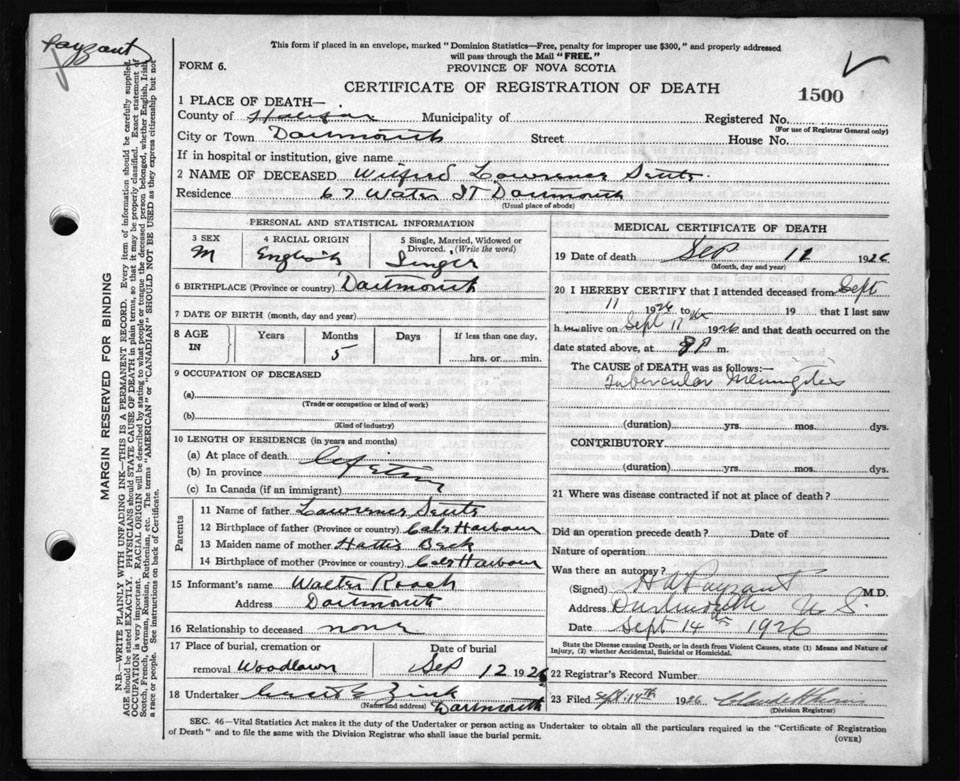 Payzant
This form if placed in an envelope, marked "Dominion Statistics—Free, penalty for improper use $300," and properly addressed
will pass through the Mail "FREE."
FORM 6.
PROVINCE OF NOVA SCOTIA
CERTIFICATE OF REGISTRATION OF DEATH
1500
1 PLACE OF DEATH—
County of Halifax Municipality of Registered No.
(For use of Registrar General only)
City or Town Dartmouth Street House No.
If in hospital or institution, give name
2 NAME OF DECEASED Wilfred Lawrence
Residence 67 Water St Dartmouth
(Usual place of abode)
PERSONAL AND STATISTICAL INFORMATION
3 SEX 4 RACIAL ORIGIN 5 Single, Married, Widowed or
Divorced. (Write the word)
M English Single
6 BIRTHPLACE (Province or country) Dartmouth
7 DATE OF BIRTH (month, day and year)
8 AGE IN Years Months Days If less than one day,
5 hrs. or min.
9 OCCUPATION OF DECEASED
(a)
(Trade or occupation or kind of work)
(b)
(Kind of industry)
10 LENGTH OF RESIDENCE (in years and months)
(a) At place of death Life time
(b) In province
(c) In Canada (if an immigrant)
Parents
11 Name of father Lawrence
12 Birthplace of father (Province or country) Cole Harbour
13 Maiden name of mother Hattie Beck
14 Birthplace of mother (Province or country) Cole Harbour
15 Informant's name Walter Roach
Address Dartmouth
16 Relationship to deceased none
17 Place of burial, cremation or Date of burial
removal Woodlawn Sep 12 1926
18 Undertaker Zink
(Name and address) Dartmouth
MEDICAL CERTIFICATE OF DEATH
19 Date of death Sep 11 1926
(Month, day and year)
20 I HEREBY CERTIFY that I attended deceased from Sept
11 1926 to 19 that I last saw
h im alive on Sept 11th 1926 and that death occurred on
date stated above, at 8 P m.
The CAUSE of DEATH was as follows:—
Tubercular Meningitis
(duration) yrs. mos. dys.
CONTRIBUTORY
(duration) yrs. mos. dys.
21 Where was disease contracted if not at place of death?
Did an operation precede death? Date of
Nature of operation
Was there an autopsy?
(Signed) H A Payzant M.D.
Address Dartmouth N.S.
Date Sept 14th 1926
State the Disease causing Death, or in death from Violent Causes, state (1) Means and Nature of
Injury, (2) whether Accidental, Suicidal or Homicidal.
22 Registrar's Record Number
23 Filed Sept. 14th 1926
(Division Registrar)
SEC. 46—Vital Statistics Act makes it the duty of the Undertaker or person acting as Undertaker to obtain all the particulars required in the "Certificate of Registration
of Death" and to file the same with the Division Registrar who shall issue the burial permit.
(OVER)
MARGIN RESERVED FOR BINDING
N.B.—WRITE PLAINLY WITH UNFADING INK—THIS IS A PERMANENT RECORD. Every item of information should be carefully supplied.
AGE should be stated EXACTLY. PHYSICIANS should STATE CAUSE OF DEATH in plain terms, so that it may be properly classified. Exact statement of
OCCUPATION is very important. RACIAL ORIGIN will be described by stating to what people or tongue the deceased person belonged, whether English, Irish,
Scotch, French, German, Russian, Ruthenian, etc. The terms "AMERICAN" or "CANADIAN" SHOULD NOT BE USED as they express citizenship but not
a race or people. See instructions on back of Certificate.